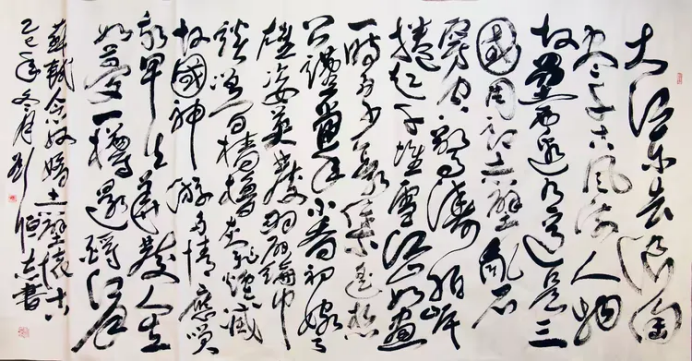 大江东去浪淘
尽千古风流人物
故壘西邊人道是三
國周郎赤壁亂石
穿空驚濤拍岸
捲起千堆雪江山如畫
一時多少豪傑遙想
公瑾當年小喬初嫁了
雄姿英發羽扇綸巾
談笑間檣櫓灰飛煙滅
故國神游多情應笑
我早生華髮人生
如夢一樽還酹江月
蘇軾念奴嬌赤壁懷古
年冬月劉志書